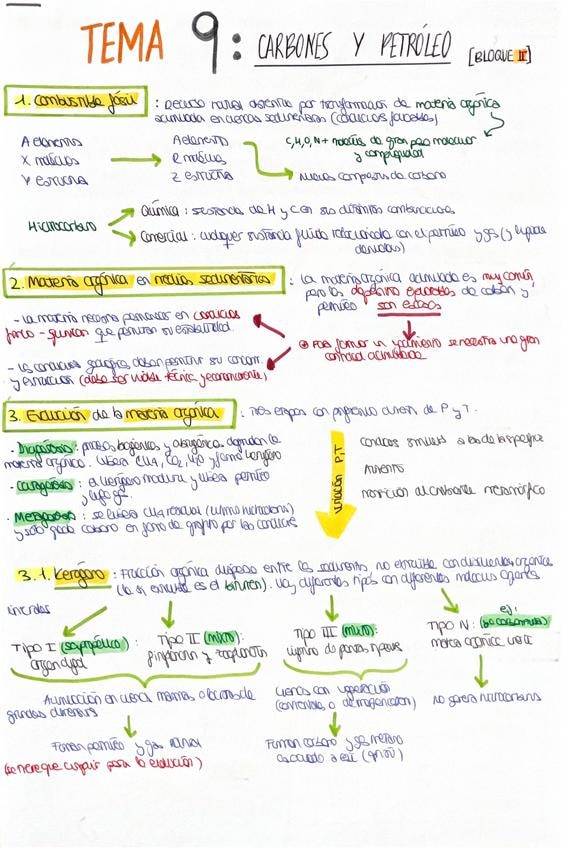 TEMA 9: CARBONES Y PETRÓLEO [BLOQUE II]
1. Combustible fósil : Recurso natural obtenido por transformación de materia orgánica
acumulada en cuencas sedimentarias (condiciones favorables)
A elementos A elemento C, H, O, N + moléculas de gran peso molecular
X moléculas R moléculas y complejidad
Y estructura Z estructura Nuevos compuestos de carbono
Hidrocarburo
Química : sustancia de H y C en sus distintas combinaciones
Comercial : cualquier sustancia fluida relacionada con el petróleo y gas (y líquidos
derivados)
2. Materia orgánica en medios sedimentarios : La materia orgánica acumulada es muy común
pero los depósitos explotables de carbón y
petróleo son escasos
- La materia necesita permanecer en condiciones
físico-químicas que permitan su estabilidad.
Para formar un yacimiento se necesita una gran
cantidad acumulada
- Las condiciones geológicas deben permitir su
y extracción (debe ser viable técnica y económicamente)
3. Evolución de la materia orgánica : Tres etapas con progresivo aumento de P y T.
· Diagénesis : procesos biogénicos y abiogénicos degradan la
materia orgánica. Libera CH4, CO2, H2O y forma kerógeno
· Catagénesis : el kerógeno madura y libera petróleo
y luego gas.
· Metagénesis : se libera CH4 residual (último hidrocarburo)
y sólo queda carbono en forma de grafito por las condiciones
variación P,T
condiciones similares a las de la superficie
aumento
transición al ambiente metamórfico
3.1. Kerógeno : Fracción orgánica dispersa entre los sedimentos, no extraíble con disolventes orgánicos
(la sí extraíble es el bitumen). Hay diferentes tipos con diferentes materias orgánicas
iniciales
Tipo I (sapropélico) : Tipo II (mixto) : Tipo III (mixto) : Tipo IV : ej:
algas fitoplancton y zooplancton lignito de plantas materia orgánica inerte
Acumulación en cuencas marinas o lacustres de
grandes dimensiones
Cuencas con vegetación
(continentales, o de transición)
No genera hidrocarburos
Forman petróleo y gas natural
(se tiene que cumplir para la evolución)
Forman carbono y gas metano
asociado a este (grisú)